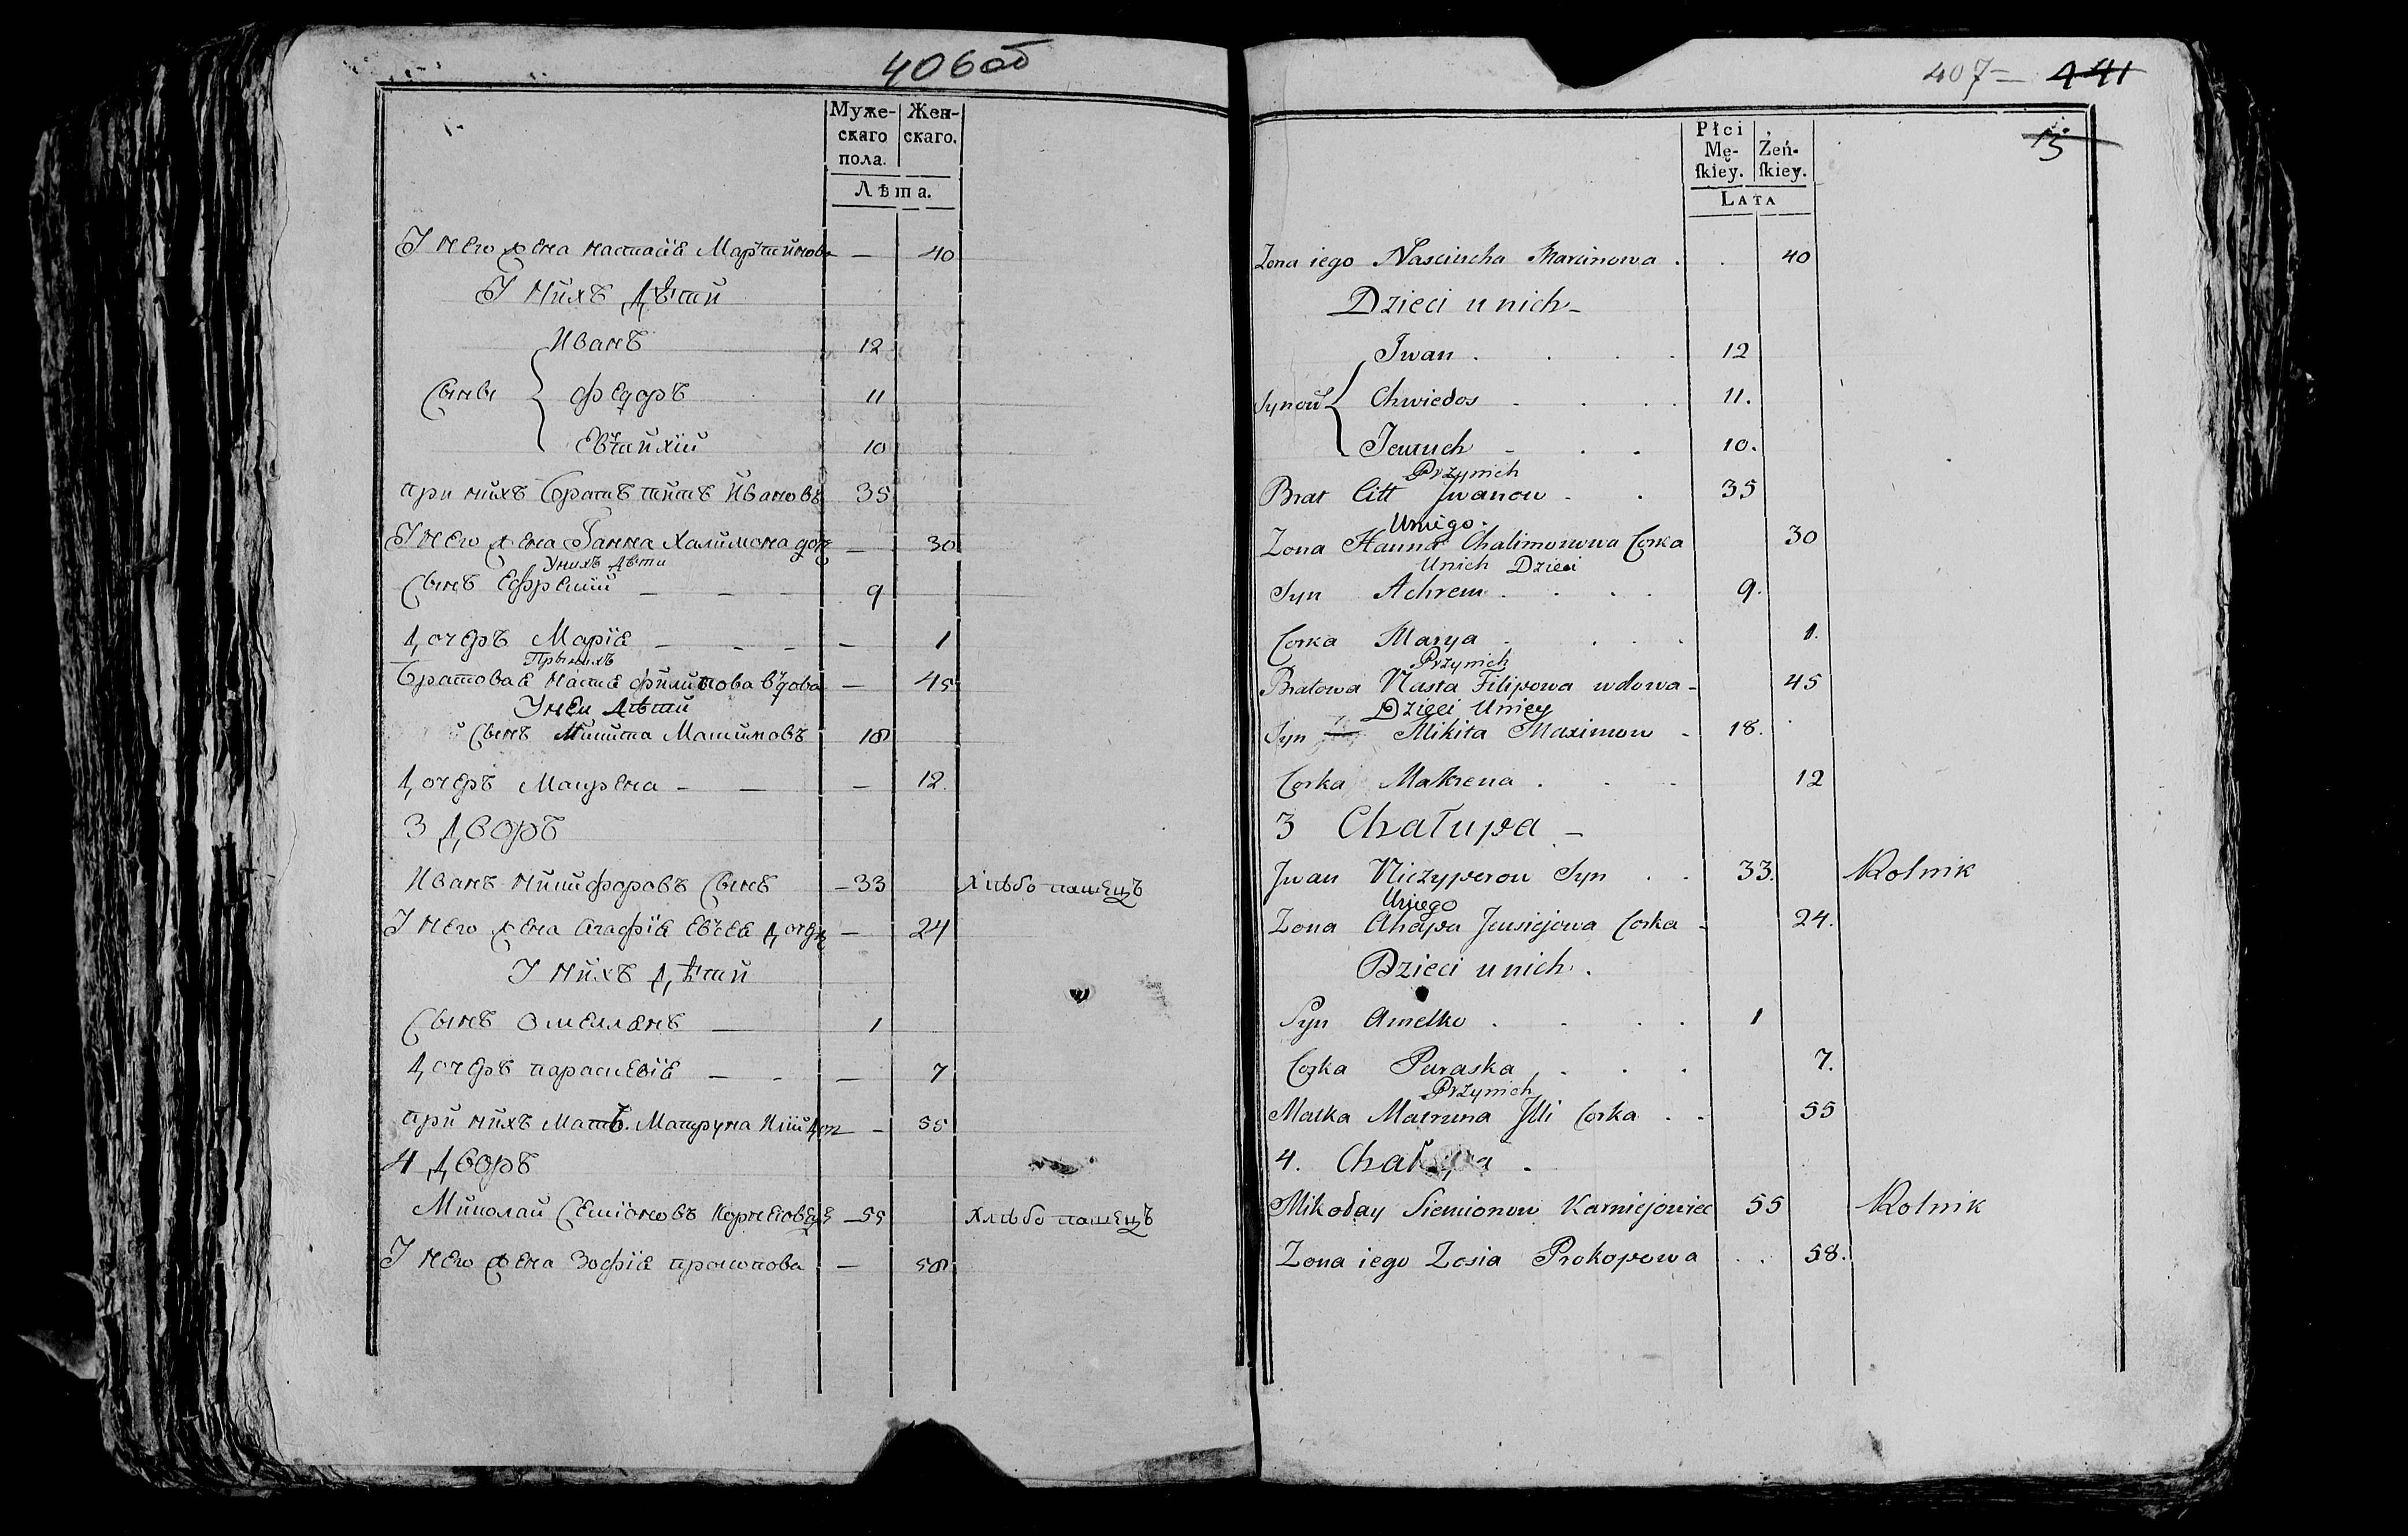 406 об
Муже-
скаго
пола.
Жен-
скаго.
Лѣта.
У него жена настасія Мартинова — 40
У нихъ дѣти
Иванъ 12
Сыны
Федоръ 11
Евтихій 10
при нихъ братъ титъ Ивановъ 35
У него жена Ганна Халимона доч — 30
У нихъ дѣти
Сынъ Ефремій — — — 9
дочеръ Марія — — — — 1
При нихъ
братовая настя филипова вдова — 45
У неи дѣти
Сынъ Микита Максимовъ 18
дочеръ Макрена — — — 12
3 дворъ
Иванъ никифоровъ Сынъ — 33 хлѣбопашецъ
У него жена агафія Евсея дочер — 24
У нихъ дѣти
Сынъ Омелянъ — 1
дочеръ параскевія — — — 7
при нихъ мать. Матруна Иліи доч — 55
4 дворъ
Миколай Семіоновъ корнеювецъ — 55 хлѣбопашецъ
У него жена Зофія прокопова — 58
407 = 441
13
Płci
Mę-
ſkiey.
Żeń-
ſkiey.
LATA
Zona iego Nasciucha Marcinowa . . 40
Dzieci u nich -
Iwan . . . . 12
Synow
Chwiedos - . . . 11.
Jewtuch - . . 10.
Przynich
Brat Citt Jwanow . . 35
Uniego.
Zona Hanna Chalimonowa Corka 30
Unich Dzieci
Syn Achrem . . . . 9.
Corka Marya . . . . 1.
Przynich
Bratowa Nasta Filipowa wdowa - 45
Dzieci Uniey
Syn Mikita Maximow - 18.
Corka Makrena . . . 12
3 Chałupa -
Jwan Niczyperow Syn . . 33. Rolnik
Uniego
Zona Ahapa Jewsiejowa Corka - 24.
Dzieci u nich .
Syn Amelko . . . . 1
Corka Paraska . . . 7.
Przynich
Matka Matruna Jlli Corka . . 55
4. Chałupa .
Mikołay Siemionow Karniejowiec 55 Rolnik
Zona iego Zosia Prokopowa . . 58.